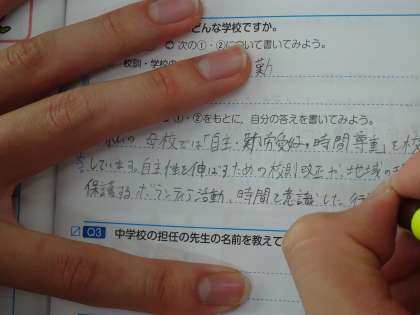 どんな学校ですか。
次の①・②について書いてみよう。
校訓・学校の 勤
①・②をもとに、自分の答えを書いてみよう。
の 母校では「自主・勤労愛好・時間尊重」を校
しています。自主性を伸ばすための校則改正や、地域の
保護する ボランティア活動、時間を意識した 行
Q3 中学校の担任の先生の名前を教えて